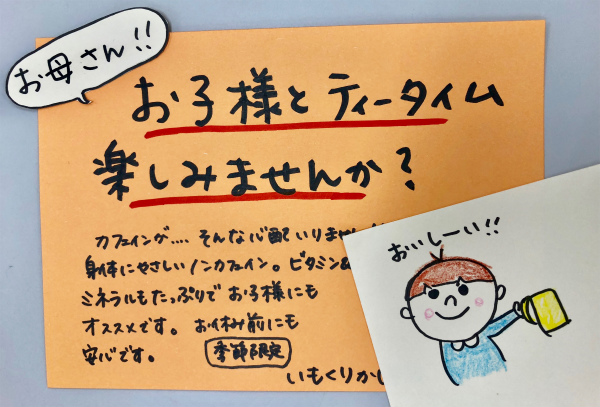 お母さん!!
お子様とティータイム
楽しみませんか?
カフェインが.... そんな心配いりませ
身体にやさしいノンカフェイン。ビタミン&
ミネラルもたっぷりで お子様にも
オススメです。お休み前にも
安心です。
季節限定
いもくりか
おいしーい!!